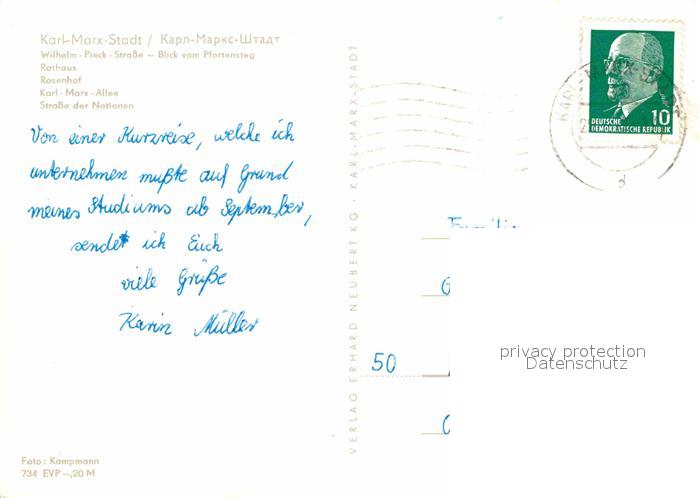 Karl-Marx-Stadt / Карл-Маркс-Штадт
Wilhelm-Pieck-Straße — Blick vom Pfortensteg
Rathaus
Rosenhof
Karl-Marx-Allee
Straße der Nationen
Von einer Kurzreise, welche ich
unternehmen mußte auf Grund
meines Studiums ab September,
sendet ich Euch
viele Grüße
Karin Müller
Foto: Kampmann
734 EVP –,20 M
VERLAG ERHARD NEUBERT KG · KARL-MARX-STADT
10
DEUTSCHE
DEMOKRATISCHE REPUBLIK
50
privacy protection
Datenschutz